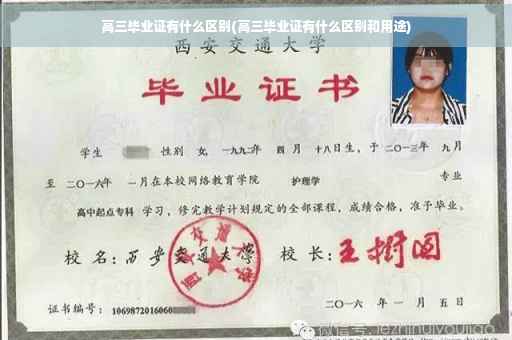 高三毕业证有什么区别(高三毕业证有什么区别和用途)
西安交通大学
毕业证书
学生 性别 女, 一九九二年 四 月 十八日生, 于 二〇一三年 九月
至 二〇一六年 一月在本校网络教育学院 护理学 专业
高中起点专科 学习, 修完教学计划规定的全部课程, 成绩合格, 准予毕业。
校 名: 西安交通大学 校 长: 王树国
西安交通大学
证书编号: 1069872016060
二〇一六 年 一 月 五 日
微信号: jezhihuiyoujiao